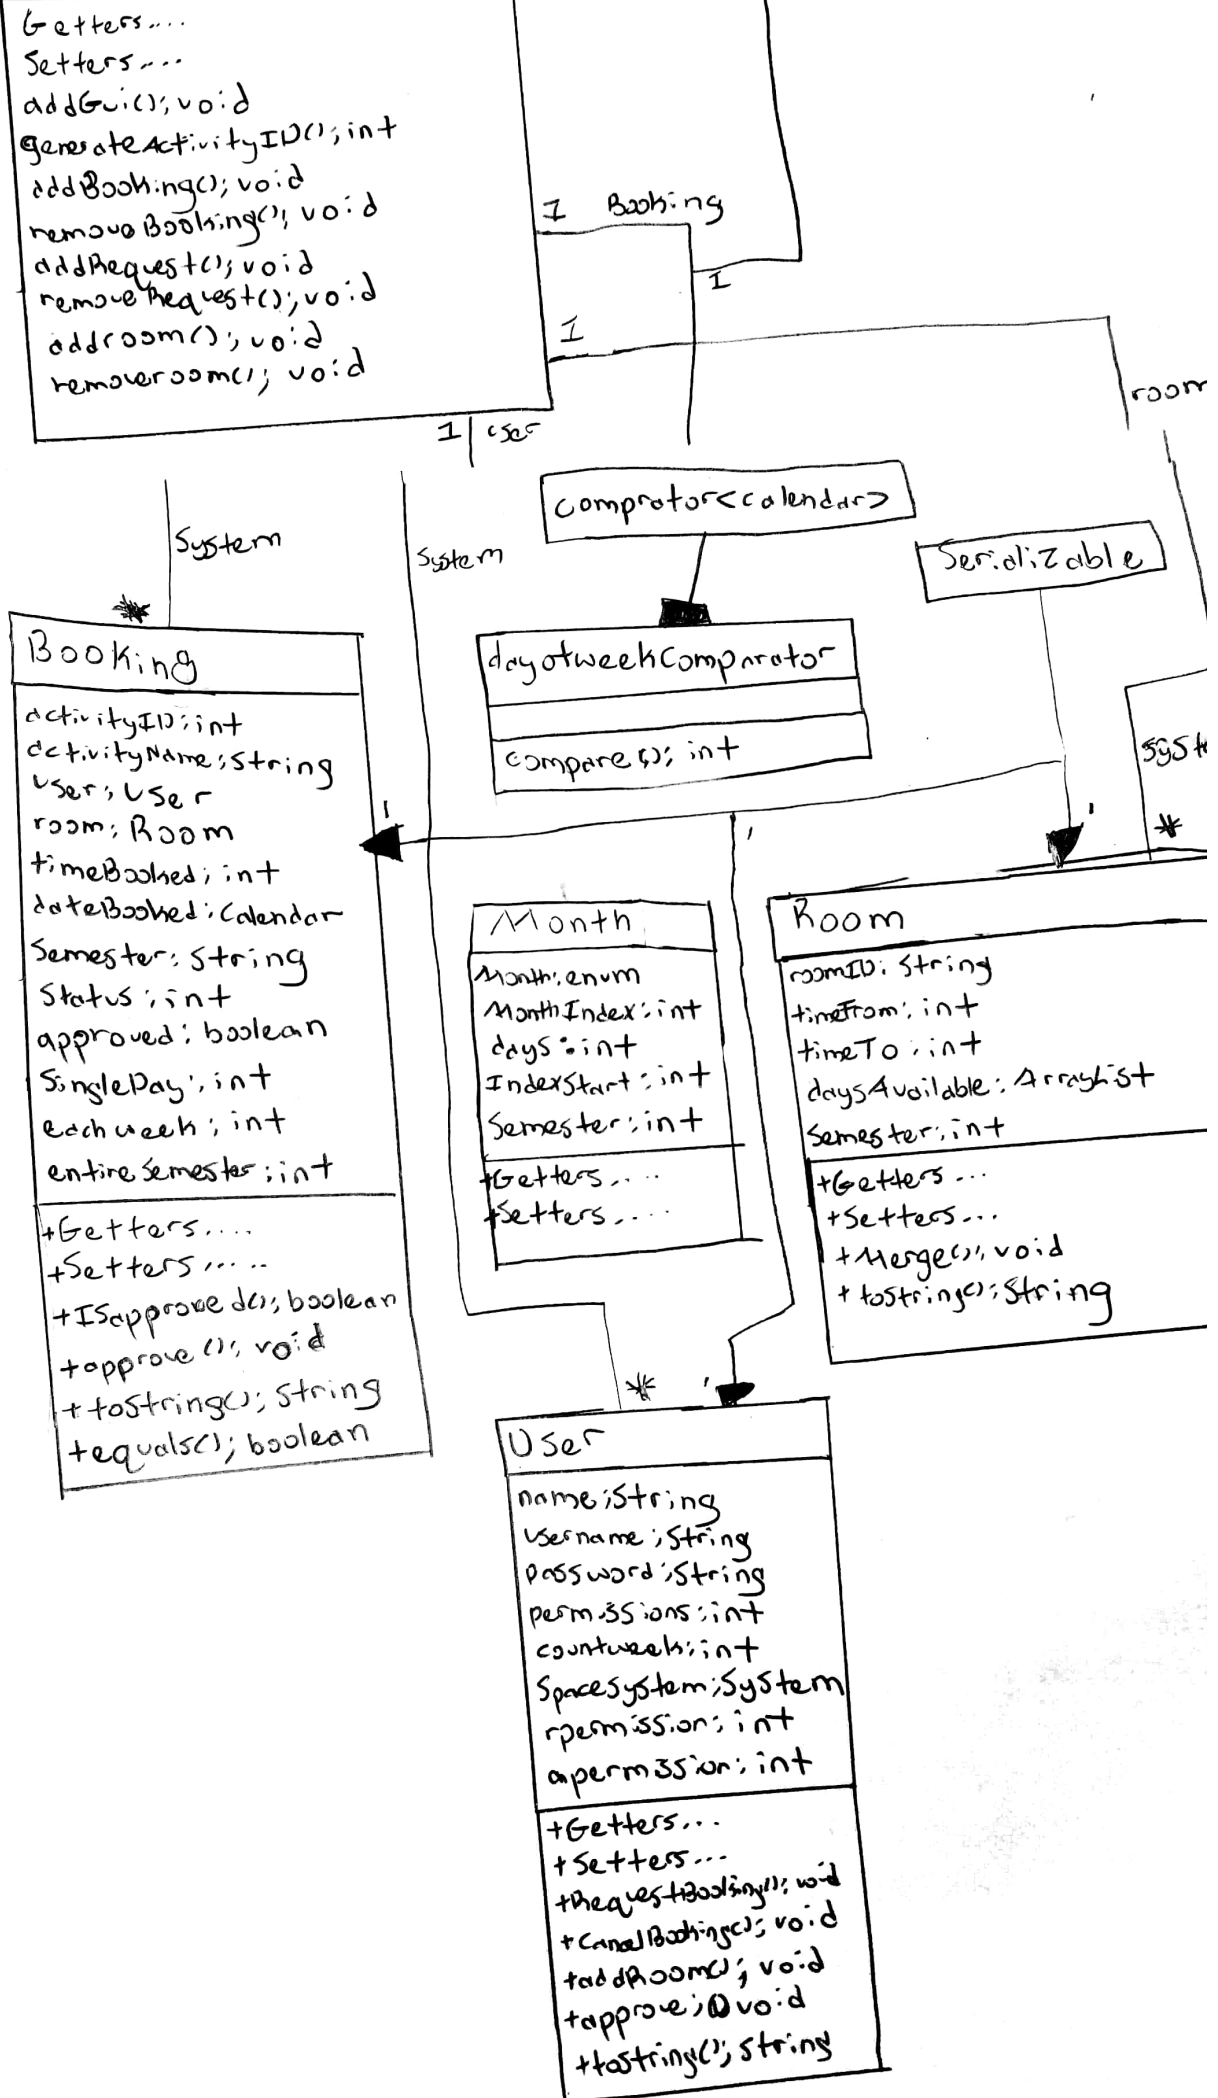 Getters....
Setters....
addGui(); void
generateActivityID(); int
addBooking(); void
removeBooking(); void
addRequest(); void
removeRequest(); void
addroom(); void
removeroom(); void
1 Booking
1
1
room
1 user
System
System
comprator<calendar>
Serializable
*
Booking
activityID: int
activityName: String
User: User
room: Room
timeBooked: int
dateBooked: Calendar
Semester: String
Status: int
approved: boolean
SingleDay: int
eachweek: int
entireSemester: int
+Getters....
+Setters.....
+ISapproved(); boolean
+approve(); void
+toString(); String
+equals(); boolean
dayofweekComparator
compare(); int
Syste
1
1
1
*
Month
Month: enum
MonthIndex: int
days: int
IndexStart: int
Semester: int
+Getters....
+Setters.....
Room
roomID: String
timeFrom: int
timeTo: int
daysAvailable: ArrayList
Semester: int
+Getters...
+Setters...
+Merge(); void
+tostring(): String
* 1
User
name: String
Username: String
password: String
permissions: int
countweek: int
SpaceSystem: System
rpermission: int
apermission: int
+Getters...
+Setters...
+RequestBooking(); void
+CancelBooking(); void
+addRoom(); void
+approve;() void
+toString(); String